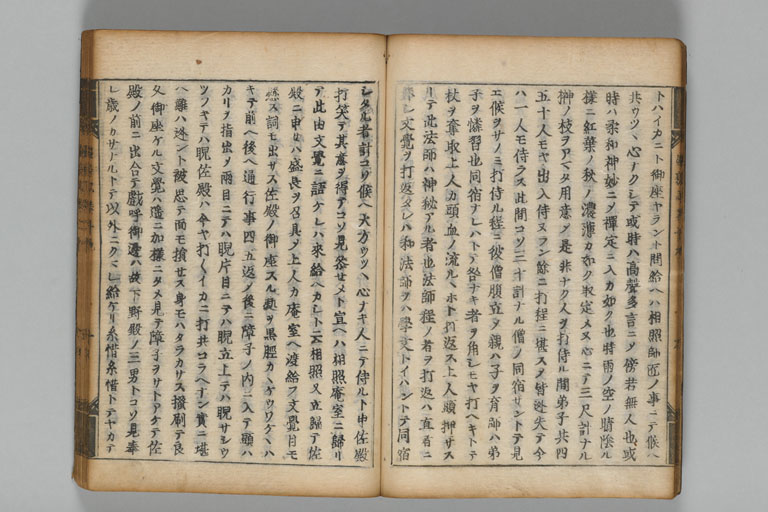 トハイカニト御座ヤラント問給ヘハ相照師匠ノ事ニテ候ハ
共ウツヽ心ナクシテ或時ハ高聲多言ニメ傍若無人也或
時ハ柔和神妙ニメ禪定ニ入カ如ク也時雨ノ空ノ晴陰ル
樣ニ紅葉ノ秋ノ濃薄カ如ク取定メヌ心ニテ三尺計ナル
榊ノ枝ヲアマタ用意メ是非ナク人ヲ打侍ル間弟子共四
五十人モヤ出入侍ヌラン餘ニ打程ニ堪スメ皆迯失テ今
ハ一人モ侍ラス此間コソ三十計ナル僧ノ同宿せントテ見
エ候ヲサノミ打侍ル程ニ彼僧腹立メ親ハ子ヲ育師ハ弟
子ヲ憐習也同宿ナレハトテ咎ナキ者ヲ角シモヤ打ヘキトテ
杖ヲ奪取上人カ頭血ノ流ルヽホト打返ス上人頭押サス
リテ此法師ハ神妙アル者也法師程ノ者ヲ打返ハ直者ニ
非シ文覺ヲ打返タレハ和法師ヲハ學文トイハントテ同宿
シタル者計コソ候ヘ大方ウツヽ心ナキ人ニテ侍ルト申佐殿
打笑テ其意ヲ得テコソ見參せメト宣ヘハ相照庵室ニ歸リ
テ此由文覺ニ語ケレハ來給ヘカシト云相照又立歸テ佐
殿ニ申せハ盛長ヲ召具メ上人カ庵室ヘ渡給フ文覺目モ
懸ス詞モ出サス佐殿ノ御座スル處ヲ黒脛カヽケウワクヽハ
キテ前ヘ後ヘ通行事四五返メ後ニ障子ノ内ニ入テ頭ハ
カリヲ指出メ兩目ニテハ睨片目ニテハ睨立上テハ睨サシウ
ツフキテハ睨佐殿ハ今ヤ打ヽイカニ打共コラヘナン實ニ堪
ヘ難ハ迯ント被思テ面モ損せス身モハタラカサス撥刷テ良
久御座ケル文覺ハ遣ニ加樣ニタメ見テ障子ヲサトアケテ佐
殿ノ前ニ出合テ戯呼御邊ハ故下野殿ノ三男トコソ見奉
レ歳ノカサナルトテ以外ニクヽレ給ケリ糸惜糸惜トテヤカテ